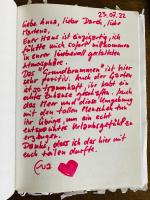 23.07.22
Liebe Anna, lieber Darek, lieber
Marten,
Euer Haus ist einzigartig, ich
fühlte mich sofort willkommen
in eurer liebevoll gestalteten
Atmosphäre.
Das Grundbrummen ist hier
sehr positiv. Auch der Garten
ist so traumhaft, ihr habt ein
echtes Zuhause geschaffen. Auch
das Meer und diese Umgebung
mit den tollen Menschen tun
ihr Übriges, um ein echt
entspanntes Urlaubsgefühl zu
erzeugen.
Danke, dass ich das hier mit
euch teilen durfte.
Eva